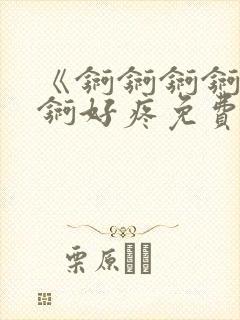 《锕锕锕锕
锕好疼免費
栗原